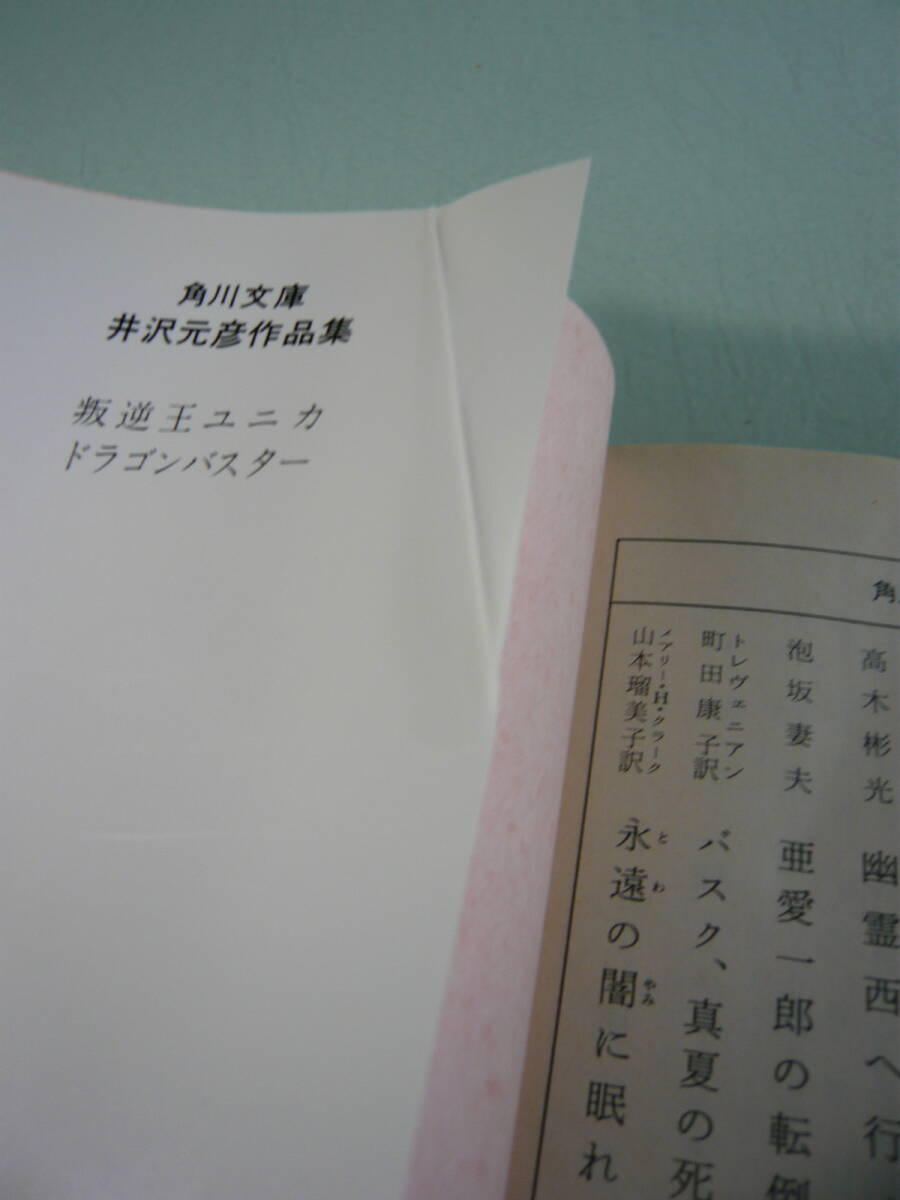 角川文庫
井沢元彦作品集
叛逆王ユニカ
ドラゴンバスター
角
高木彬光
幽霊西へ行
泡坂妻夫
亜愛一郎の転倒
トレヴェニアン
町田康子訳
バスク、真夏の死
メアリー・H・クラーク
山本瑠美子訳
永遠の闇に眠れ
とわ
やみ